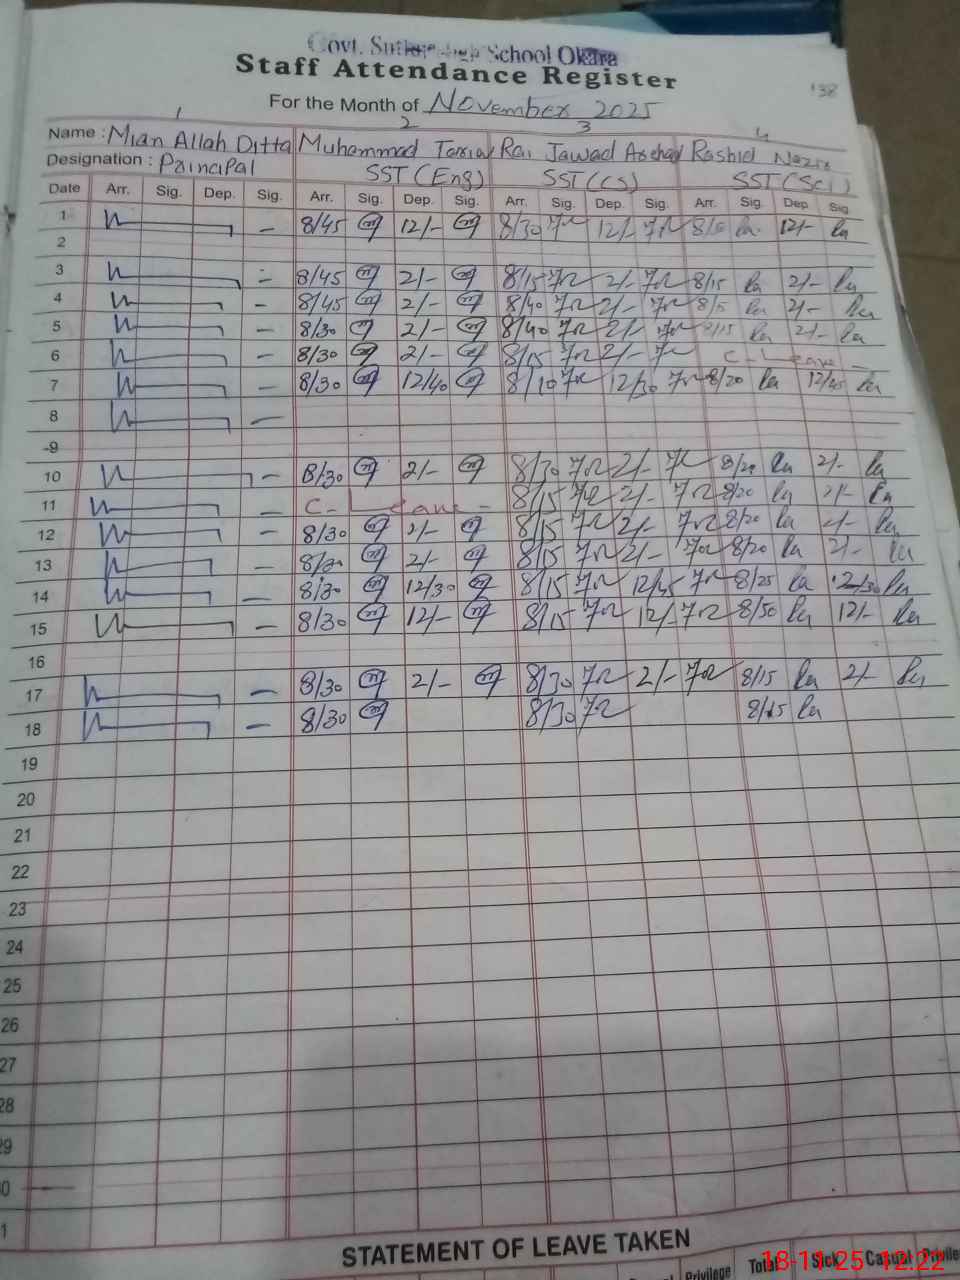 Govt. School Okara
Staff Attendance Register
138
For the Month of November 2025
1 2 3 4
Name : Mian Allah Ditta Muhammad Tariq Rai Jawad Arshad Rashid Nazir
Designation : Principal SST (Eng) SST (CS) SST (Sci)
Date Arr. Sig. Dep. Sig. Arr. Sig. Dep. Sig. Arr. Sig. Dep. Sig. Arr. Sig. Dep. Sig.
1 8/45 12/- 8/30 12/- 12/-
2
3 8/45 2/- 8/15 2/- 8/15 2/-
4 8/45 2/- 8/40 2/- 8/5 2/-
5 8/30 2/- 8/40 2/- 8/15 2/-
6 8/30 2/- 8/15 2/- C-Leave -
7 8/30 12/40 8/10 12/30 8/20 12/45
8
9
10 8/30 2/- 8/30 2/- 8/20 2/-
11 C-Leave - 8/15 2/- 8/20 2/-
12 8/30 2/- 8/15 2/- 8/20 2/-
13 8/30 2/- 8/15 2/- 8/20 2/-
14 8/30 12/30 8/15 12/45 8/25 12/30
15 8/30 12/- 8/15 12/- 8/50 12/-
16
17 8/30 2/- 8/30 2/- 8/15 2/-
18 8/30 8/30 8/15
19
20
21
22
23
24
25
26
27
28
29
0
1
STATEMENT OF LEAVE TAKEN
Privilege Total Sick Casual Privile
18-11-25 12:22